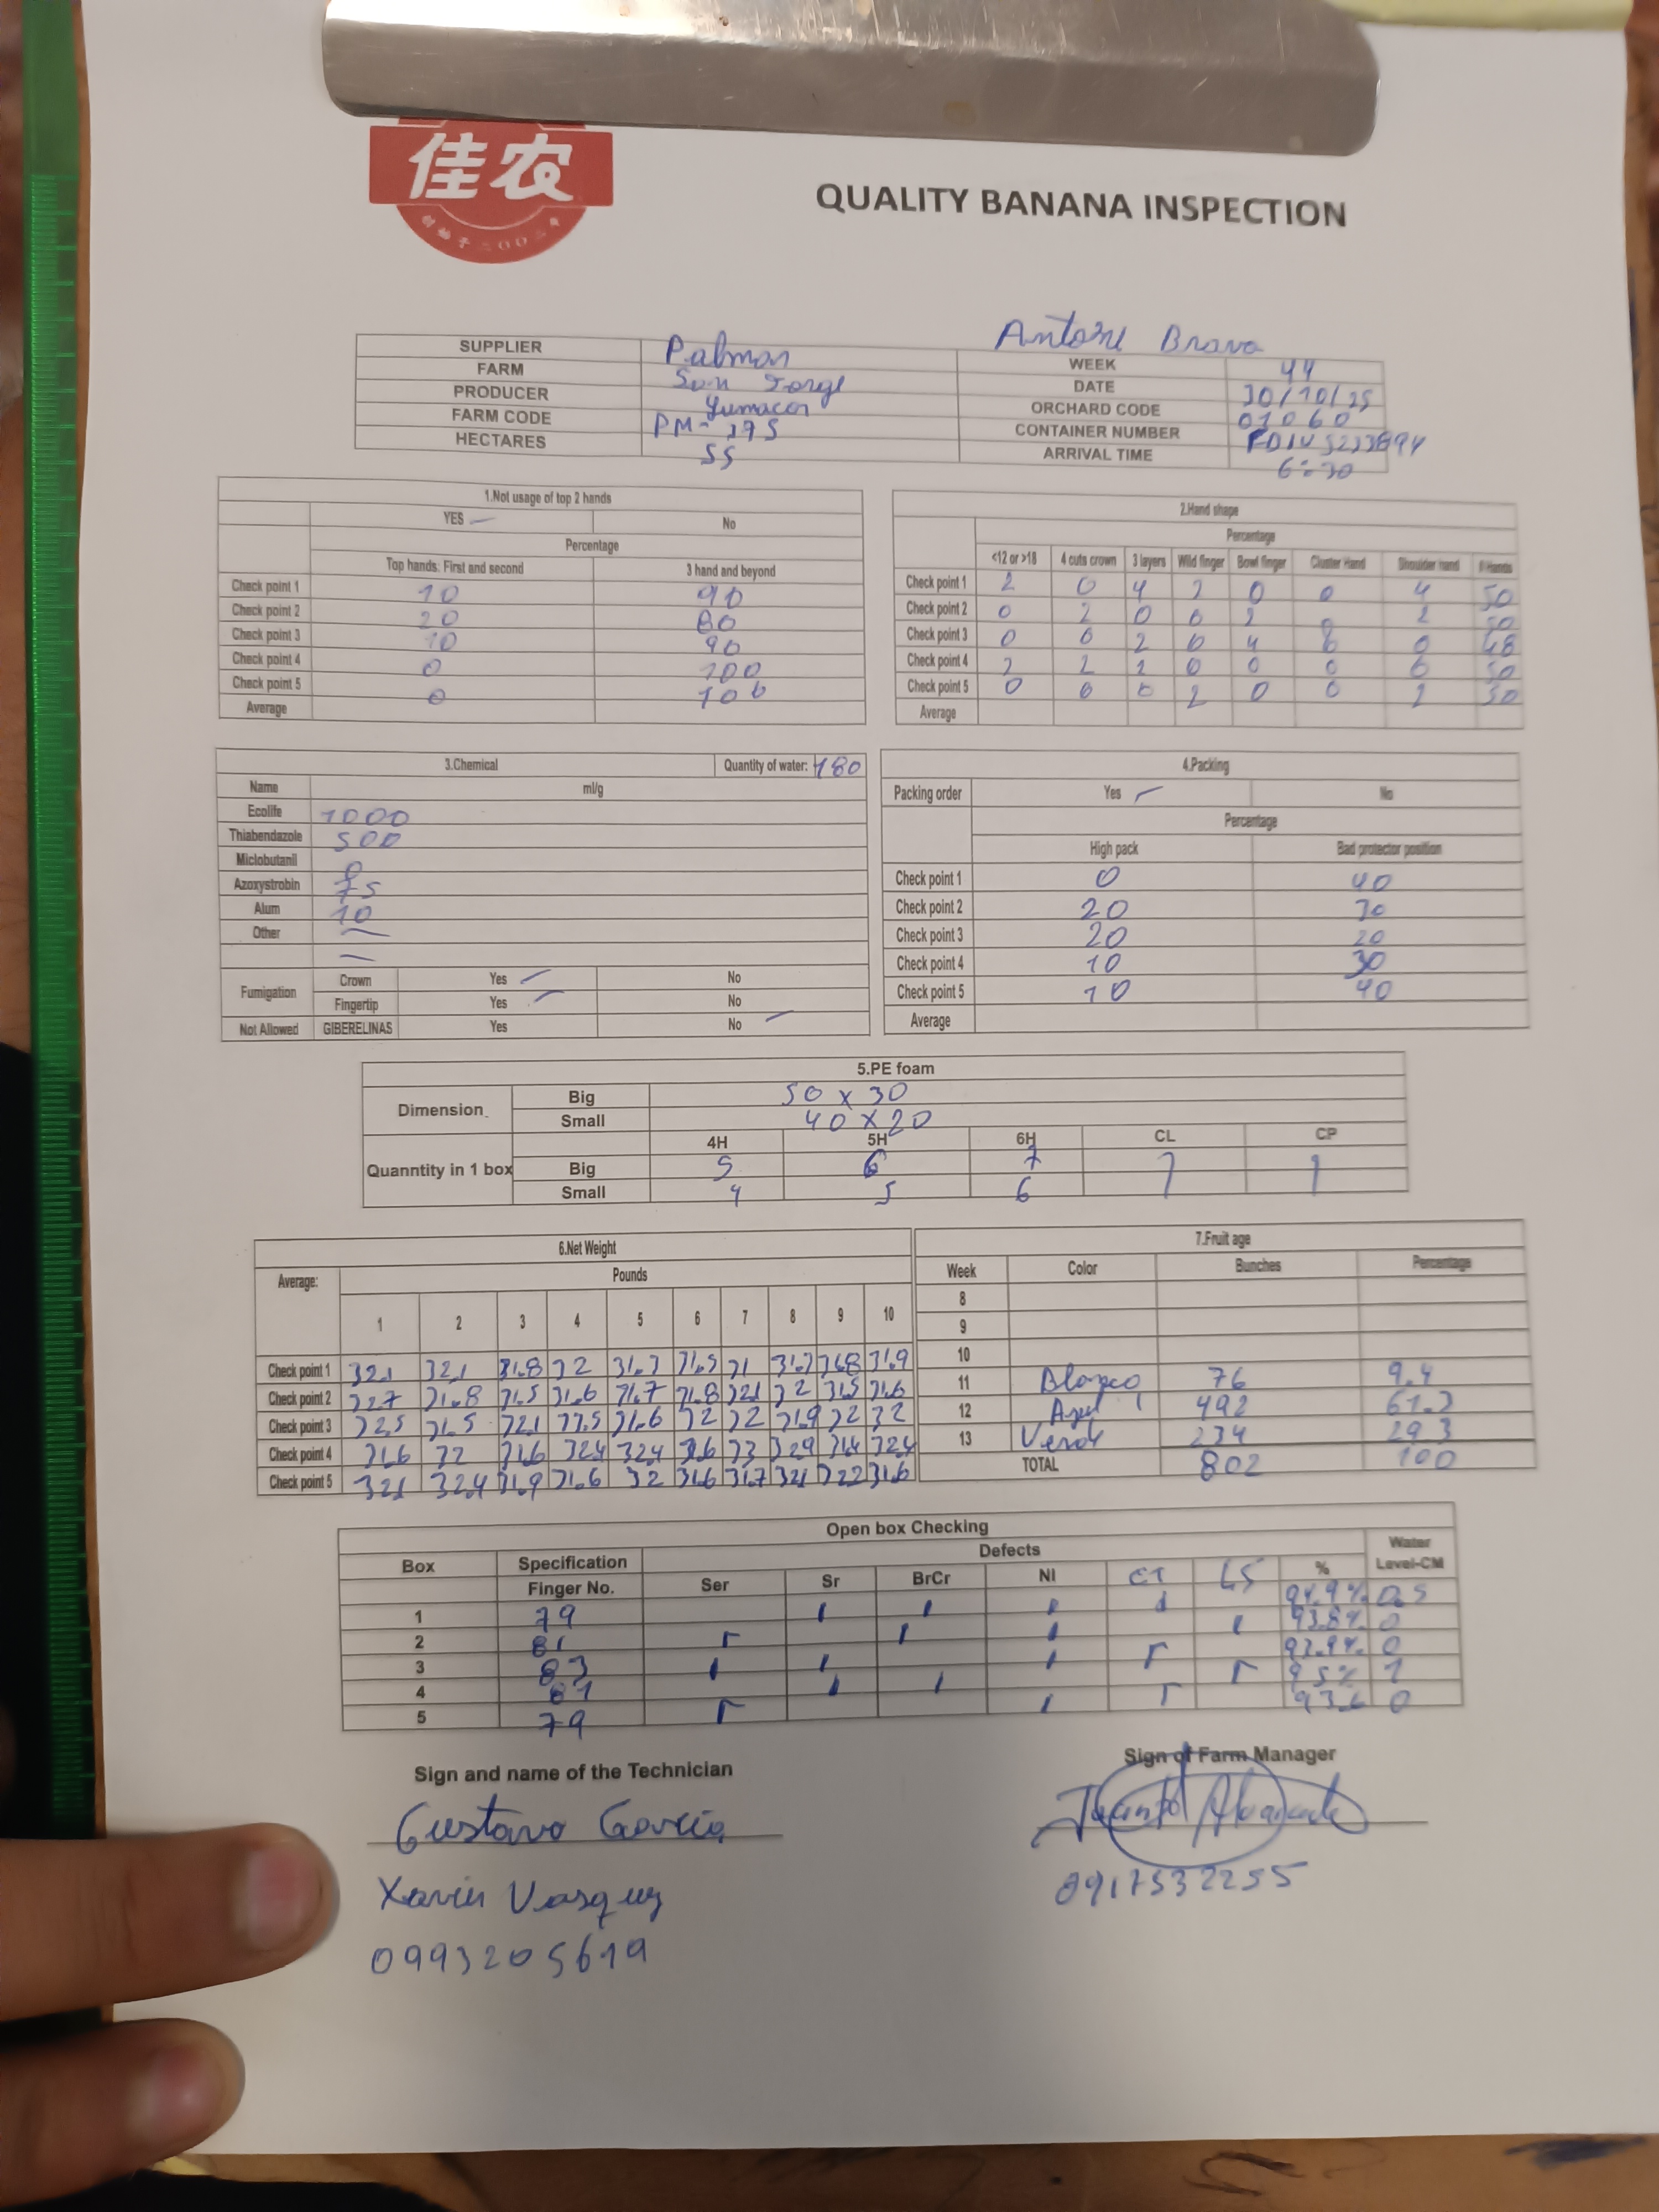 佳农
QUALITY BANANA INSPECTION
Antoni Bravo
SUPPLIER Palmar WEEK 44
FARM San Jorge DATE 30/10/25
PRODUCER Yumacor ORCHARD CODE 01060
FARM CODE PM-195 CONTAINER NUMBER
HECTARES 55 ARRIVAL TIME 6:30
1.Not usage of top 2 hands
YES No
Percentage
Top hands: First and second 3 hand and beyond
Check point 1 10 90
Check point 2 20 80
Check point 3 10 90
Check point 4 0 100
Check point 5 0 100
Average
2.Hand shape
Percentage
<12 or >18 4 cuts crown 3 layers Wild finger Bowl finger Cluster Hand Shoulder hand # Hands
Check point 1 2 0 4 2 0 0 4 50
Check point 2 0 2 0 0 2 0 2 50
Check point 3 0 0 2 0 4 0 0 48
Check point 4 2 2 2 0 0 0 0 50
Check point 5 0 0 0 2 0 0 2 50
Average
3.Chemical Quantity of water: 180
Name ml/g
Ecolife 1000
Thiabendazole 500
Miclobutanil 0
Azoxystrobin 75
Alum 10
Other
Fumigation Crown Yes No
Fingertip Yes No
Not Allowed GIBERELINAS Yes No
4.Packing
Packing order Yes No
Percentage
High pack Bad protector position
Check point 1 0 40
Check point 2 20 30
Check point 3 20 20
Check point 4 10 30
Check point 5 10 40
Average
5.PE foam
Dimension Big 50 x 30
Small 40 x 20
4H 5H 6H CL CP
Quanntity in 1 box Big 5 6 7 1 1
Small 4 5 6
6.Net Weight
Average: Pounds
1 2 3 4 5 6 7 8 9 10
Check point 1 32.1 32.1 31.8 32 31.7 31.5 31 31.7 31.8 31.9
Check point 2 32.7 31.8 31.5 31.6 31.7 31.8 32.1 32 31.5 31.6
Check point 3 32.5 31.5 32.1 31.5 31.6 32 32 31.9 32 32
Check point 4 31.6 32 31.6 32.4 32.4 31.6 33 32.9 31.4 32.4
Check point 5 32.1 32.4 31.9 31.6 32 31.6 31.7 32.1 32.2 31.6
7.Fruit age
Week Color Bunches Percentage
8
9
10
11 Blanco 76 9.4
12 Azul 492 61.3
13 Verde 234 29.3
TOTAL 802 100
Open box Checking
Box Specification Defects Water
Finger No. Ser Sr BrCr NI CT LS % Level-CM
1 79 94.9% 0.5
2 81 93.8% 0
3 83 92.9% 0
4 81 95% 1
5 79 93.6 0
Sign and name of the Technician
Gustavo García
Xavier Vasquez
0993205619
Sign of Farm Manager
0917532255